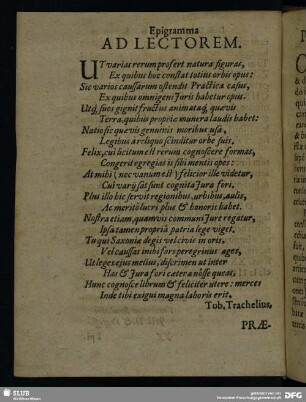 Epigramma
AD LECTOREM.
UT varias rerum profert natura figuras,
Ex quibus hoc constat totius orbis opus:
Sic varios caussarum ostendit Practica casus,
Ex quibus omnigeni Juris habetur opus.
Utq́, suos gignit fructus animatáq, quævis
Terra, quibus propriæ munera laudis habet:
Natio sic quævis genuinis moribus usa,
Legibus à reliquo scinditur orbe suis,
Felix, cui licitum est rerum cognoscere formas,
Congerit egregias is sibi mentis opes:
At mihi (nec vanum est) felicior ille videtur,
Cui varij satis sint cognita Jura fori.
Plus illo hic servit regionibus, urbibus, aulis,
Ac meritò lucri plus & honoris habet.
Nostra etiam, quamvis communi Jure regatur,
Ipsa tamen propriâ patria lege viget.
Tu qui Saxonia degis vel civis in oris,
Vel caussas inibi fors peregrinus ages,
Ut leges ejus melius, discrimen ut inter
Has & Jura fori cætera nôsse queas,
Hunc cognosce librum & feliciter utere: merces
Inde tibi exigui magna laboris erit.
Tob. Trachelius,
PRÆ-
SLUB
DFG